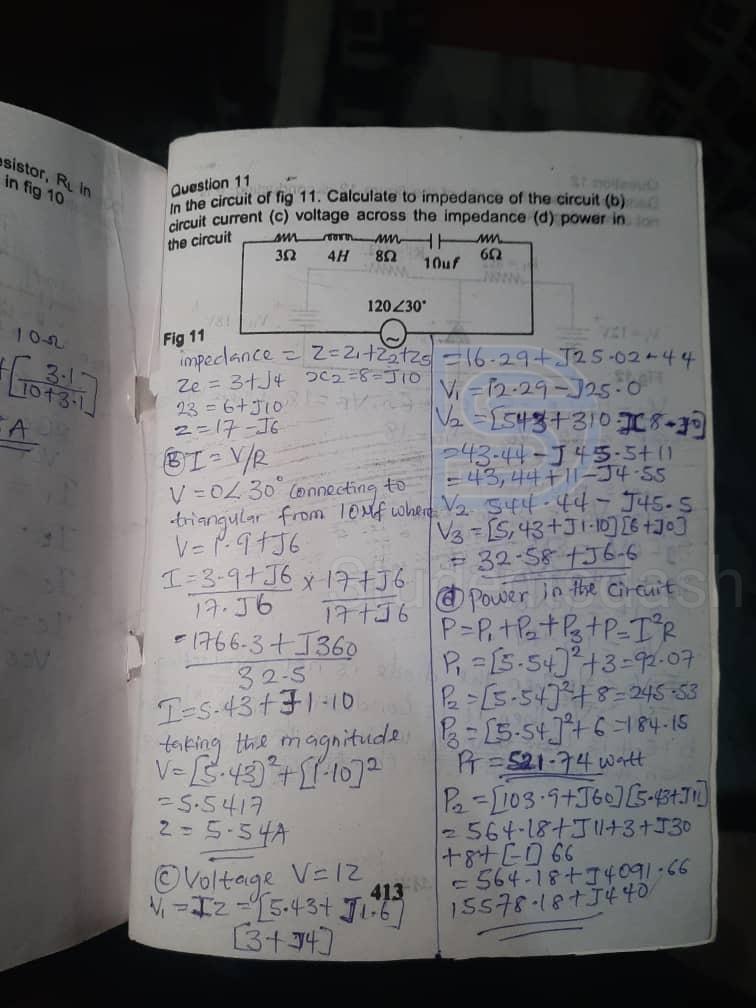 esistor, RL in
in fig 10
10Ω
3.1
10+3.1
A
Question 11
In the circuit of fig 11. Calculate to impedance of the circuit (b)
circuit current (c) voltage across the impedance (d) power in
the circuit
3Ω 4H 8Ω 10uf 6Ω
120∠30°
Fig 11
impedance = Z=Z1+Z2+Z5
Ze = 3+J4 xc2=8=J10
Z3 = 6+J10
Z=17-J6
(B) I = V/R
V=0∠30° Connecting to
triangular from 10Mf where
V=1.9+J6
I=3.9+J6 x 17+J6
17.J6 17+J6
=1766.3+J360
32.5
I=5.43+J1.10
taking the magnitude
V=[5.43)²+[1.10]²
=5.5417
2=5.54A
(C) Voltage V=12
V1=IZ=[5.43+J1.6]
[3+J4]
413
=16.29+J25.02-44
V1=12.29-J25.0
V2=[543+310-J[8-J0]
=43.44-J45.5+11
=43,44+11-J4.55
V2 544.44-J45.5
V3=[5,43+J1.10][6+J0]
=32.58+J6.6
(d) power in the circuit
P=P1+P2+P3+P=I²R
P1=[5.54]²+3=92.07
P2=[5.54]²+8=245.53
P3=[5.54]²+6=184.15
PT=521.74 watt
P2=[103.9+J60][5.43+J11]
=564.18+J11+3+J30
+8+[-1] 66
=564.18+J4091.66
15578.18+J440